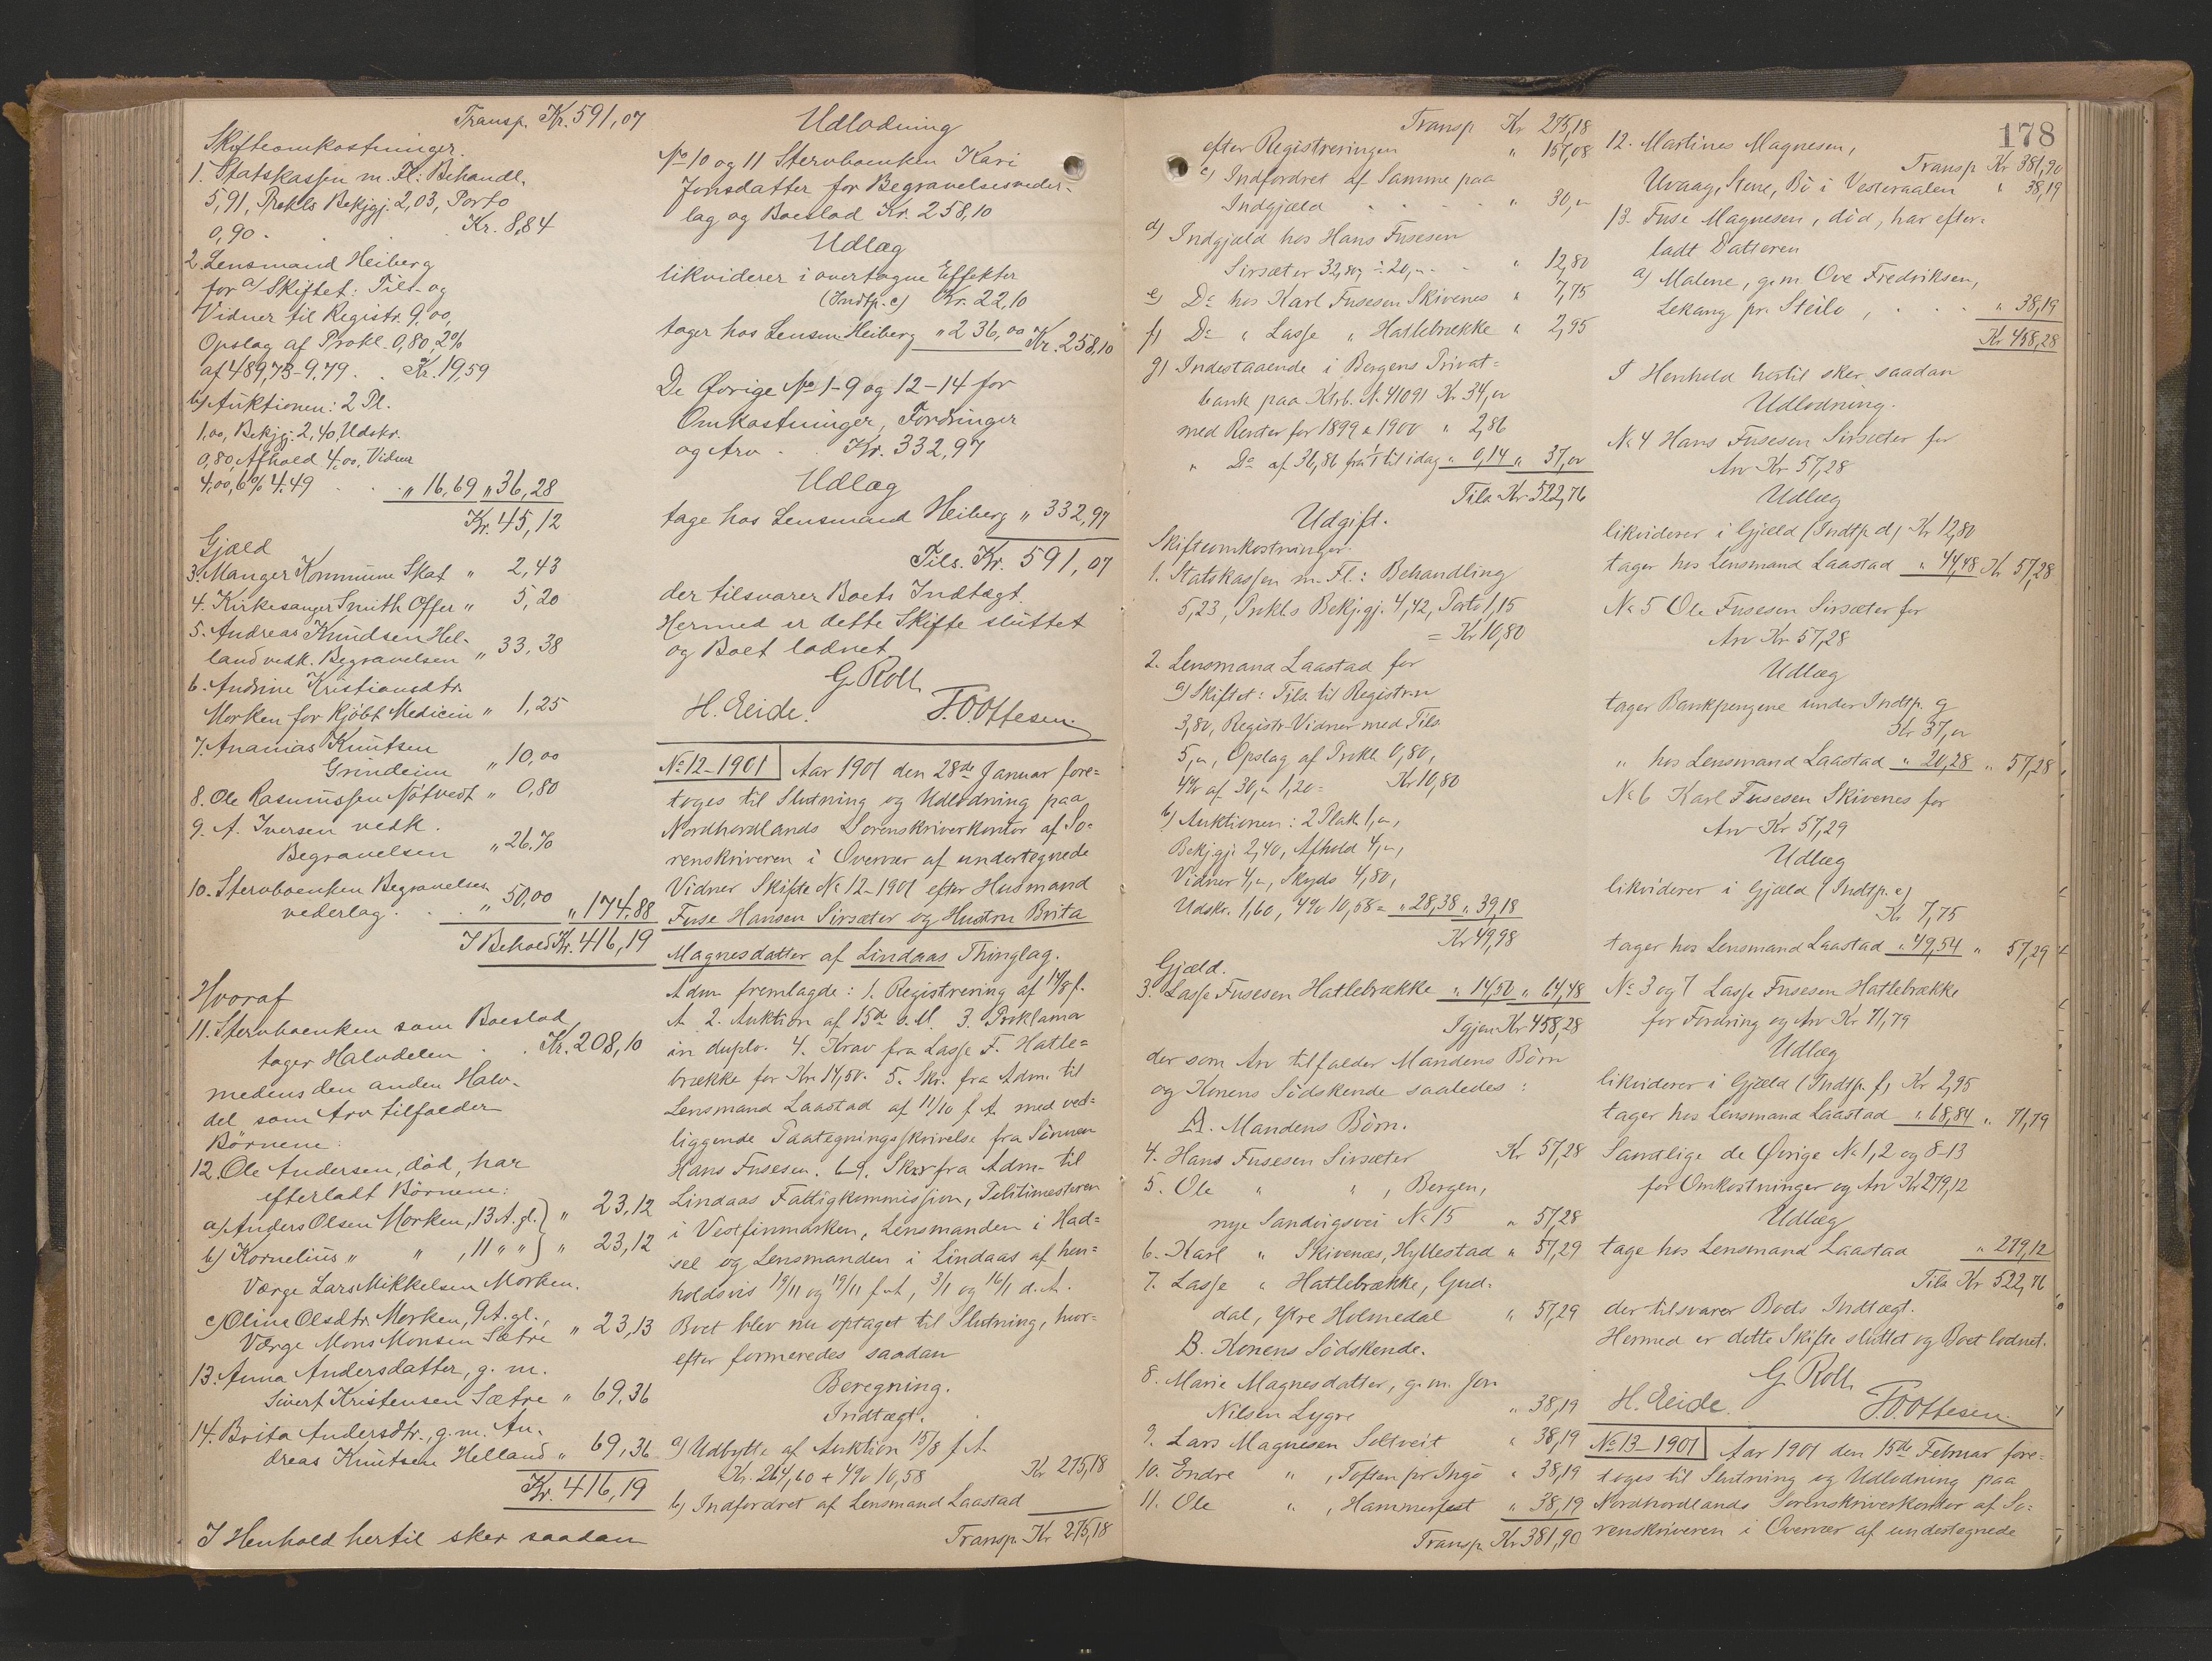 Transp. Kr. 591,07
Skifteomkostninger.
1. Statskassen m. Fl: Behandl.
5,91, Prokls Bekjgj. 2,03, Porto
0,90 . . . Kr. 8,84
2. Lensmand Heiberg
for a) Skiftet: Tils. og
Vidner til Registr. 9,00,
Opslag af Prokl. 0,80, 2%
af 489,73 - 9,79 . . Kr. 19,59
b) Auktionen: 2 Pl.
1,00, Bekjgj. 2,40, Udskr.
0,80, Afhold 4,00, Vidner
4,00, 6% 4.49 . . „ 16,69 „ 36,28
Kr. 45,12
Gjæld
3. Manger Kommune Skat „ 2,43
4. Kirkesanger Smith Offer „ 5,20
5. Andreas Knudsen Hel-
land vedk. Begravelsen „ 33,38
6. Andrine Kristiansdtr.
Morken for kjøbt Medicin „ 1,25
7. Ananias Knutsen
Grindeim „ 10,00
8. Ole Rasmussen Nøtvedt „ 0,80
9. A. Iversen vedk.
Begravelsen „ 26,70
10. Stervboenken Begravelses
vederlag . . „ 50,00 „ 174,88
I Behold Kr. 416,19
Hvoraf
11. Stervboenken som Boeslod
tager Halvdelen . . Kr. 208,10
medens den anden Halv-
del som Arv tilfalder
Børnene:
12. Ole Andersen, død, har
efterladt Børnene:
a) Anders Olsen Morken, 13 A. gl. } „ 23,12
b) Kornelius „ „ , 11 „ „ } „ 23,12
Værge Lars Mikkelsen Morken.
c) Oline Olsdtr. Morken, 9 A. gl.,
Værge Mons Monsen Sætre „ 23,13
13. Anna Andersdatter, g. m.
Sivert Kristensen Sætre „ 69,36
14. Brita Andersdtr., g. m. An-
dreas Knutsen Helland „ 69,36
Kr. 416,19
I Henhold hertil sker saadan
Udlodning
No 10 og 11 Stervboenken Kari
Jonsdatter for Begravelsesveder-
lag og Boeslod Kr. 258,10
Udlæg
likviderer i overtagne Effekter
(Indtp. c) Kr. 22,10
tager hos Lensm. Heiberg „ 236,00 Kr. 258,10
De Øvrige No 1-9 og 12-14 for
Omkostninger, Fordringer
og Arv . . Kr. 332,97
Udlæg
tage hos Lensmand Heiberg „ 332,97
Tils. Kr. 591,07
der tilsvarer Boets Indtægt.
Hermed er dette Skifte sluttet
og Boet lodnet
G. Roll
H. Eeide. T. O. Ottesen.
No 12-1901 Aar 1901 den 28de Januar fore-
toges til Slutning og Udlodning paa
Nordhordlands Sorenskriverkontor af So-
renskriveren i Overvær af undertegnede
Vidner Skifte No 12-1901 efter Husmand
Fuse Hansen Sirsæter og Hustru Brita
Magnesdatter af Lindaas Thinglag.
Adm. fremlagde: 1. Registrering af 14/8 f.
A. 2. Auktion af 15de s. M. 3. Proklama
in duplo. 4. Krav fra Lasse F. Hatle-
brække for Kr. 14,50. 5. Skr. fra Adm. til
Lensmand Laastad af 11/10 f. A. med ved-
liggende Paategningsskrivelse fra Sønnen
Hans Fusesen. 6-9. Skr. fra Adm. til
Lindaas Fattigkommission, Politimesteren
i Vestfinmarken, Lensmanden i Had-
sel og Lensmanden i Lindaas af hen-
holdsvis 19/11 og 19/11 f. A., 3/1 og 16/1 d. A.
Boet blev nu optaget til Slutning, hvor-
efter formeredes saadan
Beregning.
Indtægt.
a) Udbytte af Auktion 15/8 f. A.
Kr. 264,60 + 4% 10,58 Kr 275,18
b) Indfordret af Lensmand Laastad
Transp. Kr 275,18
178
Transp Kr 275,18
efter Registreringen „ 157,08
c) Indfordret af Samme paa
Indgjæld . . . . „ 30,„
d) Indgjæld hos Hans Fusesen
Sirsæter 32,80 ÷ 20,„ . . „ 12,80
e) Do hos Karl Fusesen Skivenes „ 7,75
f) Do „ Lasse „ Hatlebrække „ 2,95
g) Indestaaende i Bergens Privat-
bank paa Ktrb. N. 41091 Kr. 34,00
med Renter for 1899 & 1900 „ 2,86
„ Do af 36,86 fra 1/1 til idag „ 0,14 „ 37,00
Tils. Kr 522,76
Udgift.
Skifteomkostninger.
1. Statskassen m. Fl.: Behandling
5,23, Prokls Bekjgj. 4,42, Porto 1,15
= Kr 10,80
2. Lensmand Laastad for
a) Skiftet: Tils. til Registr.
3,80, Registr. Vidner med Tils.
5,„, Opslag af Prokl. 0,80,
4% af 30,„ 1,20 = Kr 10,80
b) Auktionen: 2 Plak. 1,„,
Bekjgj. 2,40, Afhold 4,„,
Vidner 4,„, Skyds 4,80,
Udskr. 1,60, 4% 10,58 = „ 28,38 „ 39,18
Kr 49,98
Gjæld.
3. Lasse Fusesen Hatlebrække „ 14,50 „ 64,48
Igjen Kr 458,28
der som Arv tilfalder Mandens Børn
og Konens Sødskende saaledes:
A. Mandens Børn.
4. Hans Fusesen Sirsæter Kr 57,28
5. Ole „ „ , Bergen,
nye Sandvigsvei No 15 „ 57,28
6. Karl „ Skivenæs, Hyllestad „ 57,29
7. Lasse „ Hatlebrække, Gud-
dal, Ytre Holmedal „ 57,29
B. Konens Sødskende.
8. Marie Magnesdatter, g. m. Jon
Nilsen Lygre „ 38,19
9. Lars Magnesen Soltveit „ 38,19
10. Endre „ , Toften pr. Ingø „ 38,19
11. Ole „ , Hammerfest „ 38,19
Transp. Kr 381,90
12. Martines Magnesen,
Transp Kr 381,90
Uvaag, Stene, Bø i Vesteraalen „ 38,19
13. Fuse Magnesen, død, har efter-
ladt Datteren
a) Malene, g. m. Ove Fredriksen,
Lekang pr. Steilo, . . . „ 38,19
Kr 458,28
I Henhold hertil sker saadan
Udlodning.
No 4 Hans Fusesen Sirsæter for
Arv Kr 57,28
Udlæg
likviderer i Gjæld (Indtp. d) Kr 12,80
tager hos Lensmand Laastad „ 44,48 Kr 57,28
No 5 Ole Fusesen Sirsæter for
Arv Kr 57,28
Udlæg
tager Bankpengene under Indtp. g
Kr 37,00
„ hos Lensmand Laastad „ 20,28 „ 57,28
No 6 Karl Fusesen Skivenes for
Arv Kr 57,29
Udlæg
likviderer i Gjæld (Indtp. e)
Kr 7,75
tager hos Lensmand Laastad „ 49,54 „ 57,29
No 3 og 7 Lasse Fusesen Hatlebrække
for Fordring og Arv Kr 71,79
Udlæg
likviderer i Gjæld (Indtp. f) Kr 2,95
tager hos Lensmand Laastad „ 68,84 „ 71,79
Samtlige de Øvrige No 1, 2 og 8-13
for Omkostninger og Arv Kr 279,12
Udlæg
tage hos Lensmand Laastad „ 279,12
Tils. Kr 522,76
der tilsvarer Boets Indtægt.
Hermed er dette Skifte sluttet og Boet lodnet.
G. Roll
H. Eeide. T. O. Ottesen.
No 13-1901 Aar 1901 den 15de Februar fore-
toges til Slutning og Udlodning paa
Nordhordlands Sorenskriverkontor af So-
renskriveren i Overvær af undertegnede